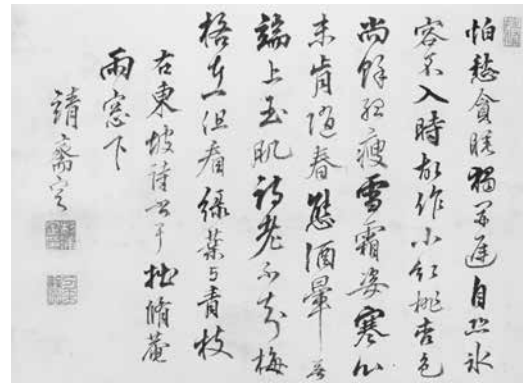 怕愁貪睡獨開遲自恐冰
容不入時故作小紅桃杏色
尚餘孤瘦雪霜姿寒心
未肯隨春態酒暈無
端上玉肌詩老不知梅
格在但看綠葉与青枝
右東坡詩書于拙脩菴
雨窓下
靖齋